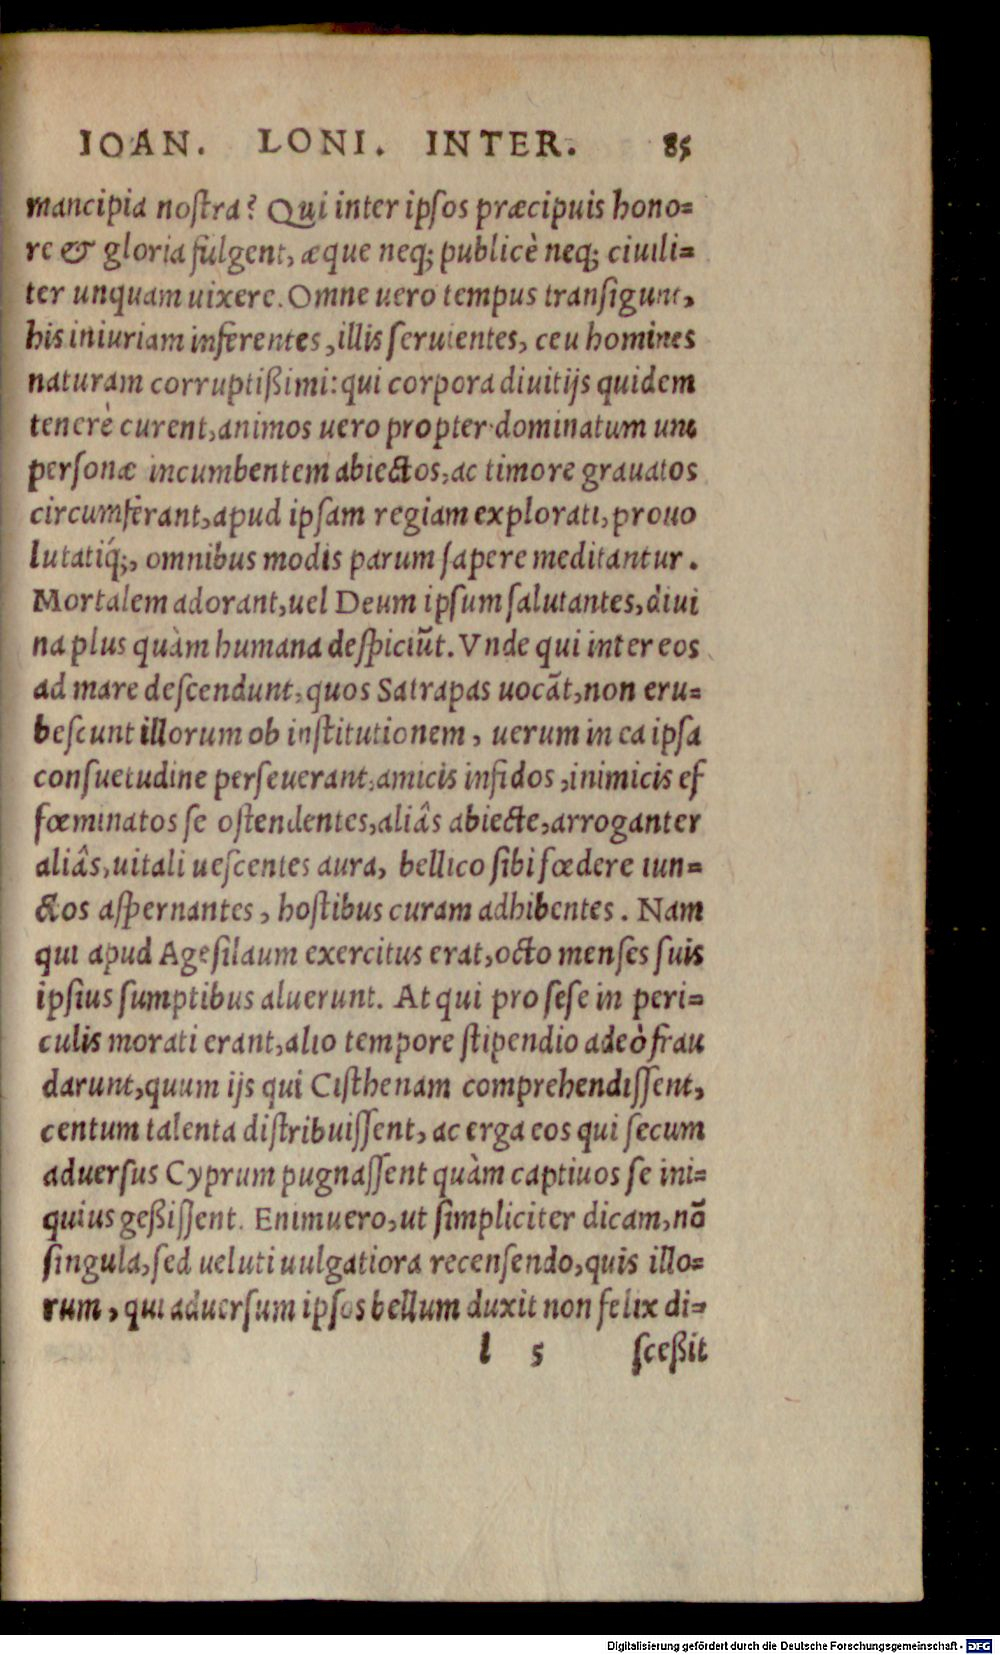 IOAN. LONI. INTER. 85
mancipia nostra? Qui inter ipsos præcipuis hono=
re & gloria fulgent, æque neq; publicè neq; ciuili=
ter unquam uixere. Omne uero tempus transigunt,
his iniuriam inferentes, illis seruientes, ceu homines
naturam corruptißimi: qui corpora diuitijs quidem
tenerè curent, animos uero propter dominatum unæ
personæ incumbentem abiectos, ac timore grauatos
circumferant, apud ipsam regiam explorati, prouo
lutatiq́;, omnibus modis parum sapere meditantur.
Mortalem adorant, uel Deum ipsum salutantes, diui
na plus quàm humana despiciũt. Vnde qui inter eos
ad mare descendunt, quos Satrapas uocãt, non eru=
bescunt illorum ob institutionem, uerum in ea ipsa
consuetudine perseuerant, amicis infidos, inimicis ef
fœminatos se ostendentes, aliâs abiecte, arroganter
aliâs, uitali uescentes aura, bellico sibi fœdere iun=
ctos aspernantes, hostibus curam adhibentes. Nam
qui apud Agesilaum exercitus erat, octo menses suis
ipsius sumptibus aluerunt. At qui pro sese in peri=
culis morati erant, alio tempore stipendio adeò frau
darunt, quum ijs qui Cisthenam comprehendissent,
centum talenta distribuissent, ac erga eos qui secum
aduersus Cyprum pugnassent quàm captiuos se ini=
quius geßissent. Enimuero, ut simpliciter dicam, nõ
singula, sed ueluti uulgatiora recensendo, quis illo=
rum, qui aduersum ipsos bellum duxit non felix di=
l 5 sceßit
Digitalisierung gefördert durch die Deutsche Forschungsgemeinschaft - DFG